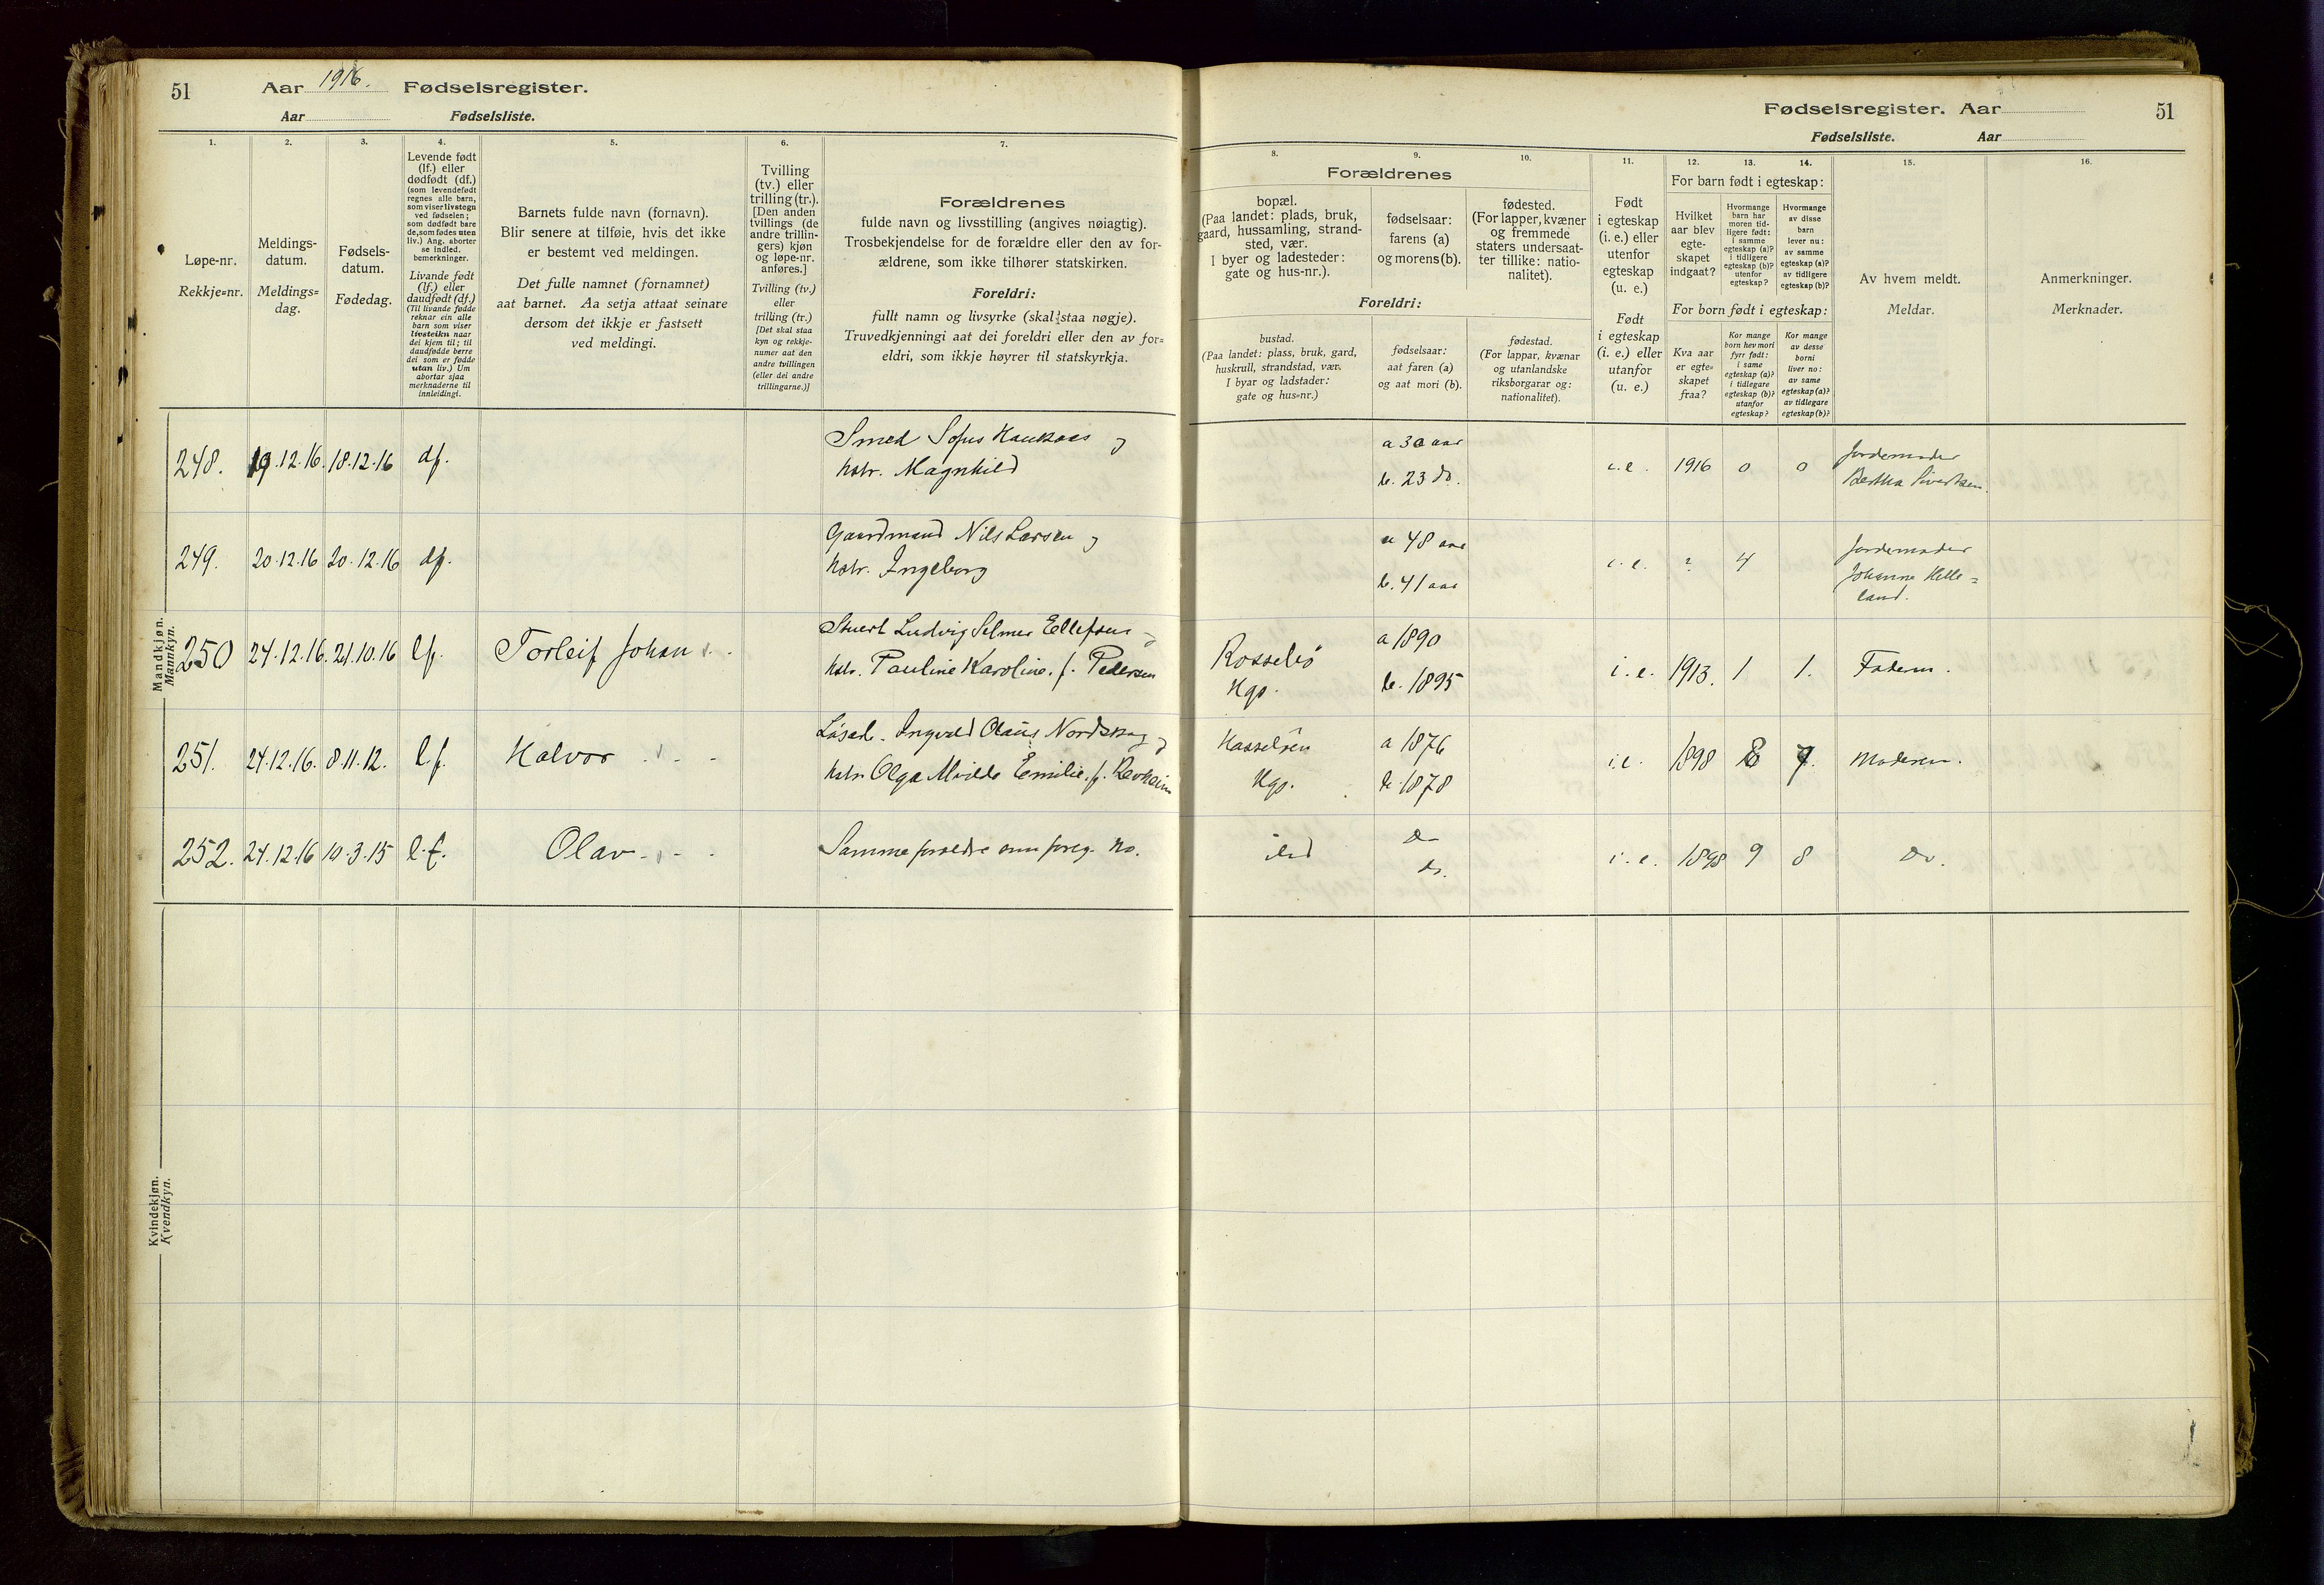 51 Aar 1916. Fødselsregister.
Aar Fødselsliste.
Fødselsregister. Aar 51
Fødselsliste. Aar
1. 2. 3. 4. 5. 6. 7. 8. 9. 10. 11. 12. 13. 14. 15. 16.
Løpe-nr.
Rekkje=nr.
Meldings-
datum.
Meldings=
dag.
Fødsels-
datum.
Fødedag.
Levende født
(lf.) eller
dødfødt (df.)
(som levendefødt
regnes alle barn,
som viser livstegn
ved fødselen;
som dødfødt bare
de, som fødes uten
liv.) Ang. aborter
se indled.
bemerkninger.
Livande født
(lf.) eller
daudfødt (df.)
(Til livande fødde
reknar ein alle
barn som viser
livsteikn naar
dei kjem til; til
daudfødde berre
dei som er fødde
utan liv.) Um
abortar sjaa
merknaderne til
innleidingi.
Barnets fulde navn (fornavn).
Blir senere at tilføie, hvis det ikke
er bestemt ved meldingen.
Det fulle namnet (fornamnet)
aat barnet. Aa setja attaat seinare
dersom det ikkje er fastsett
ved meldingi.
Tvilling
(tv.) eller
trilling (tr.).
[Den anden
tvillings (de
andre trillin-
gers) kjøn
og løpe-nr.
anføres.]
Tvilling (tv.)
eller
trilling (tr.)
[Det skal staa
kyn og rekkje-
numer aat den
andre tvillingen
(eller dei andre
trillingarne.)]
Forældrenes
fulde navn og livsstilling (angives nøiagtig).
Trosbekjendelse for de forældre eller den av for-
ældrene, som ikke tilhører statskirken.
Foreldri:
fullt namn og livsyrke (skal staa nøgje).
Truvedkjenningi aat dei foreldri eller den av for=
eldri, som ikkje høyrer til statskyrkja.
Forældrenes
bopæl.
(Paa landet: plads, bruk,
gaard, hussamling, strand-
sted, vær.
I byer og ladesteder:
gate og hus-nr.).
fødselsaar:
farens (a)
og morens (b).
fødested.
(For lapper, kvæner
og fremmede
staters undersaat-
ter tillike: natio-
nalitet).
Foreldri:
bustad.
(Paa landet: plass, bruk, gard,
huskrull, strandstad, vær.
I byar og ladstader:
gate og hus=nr.)
fødselsaar:
aat faren (a)
og aat mori (b).
fødestad.
(For lappar, kvænar
og utanlandske
riksborgarar og:
nationalitet).
Født
i egteskap
(i. e.) eller
utenfor
egteskap
(u. e.)
Født
i egteskap
(i. e.) eller
utanfor
(u. e.)
For barn født i egteskap:
Hvilket
aar blev
egte-
skapet
indgaat?
Hvormange
barn har
moren tid-
ligere født:
i samme
egteskap (a)?
i tidligere
egteskap (b)?
utenfor
egteskap?
Hvormange
av disse
barn
lever nu:
av samme
egteskap (a)?
av tidligere
egteskap (b)?
For born født i egteskap:
Kva aar
er egte=
skapet
fraa?
Kor mange
born hev mori
fyrr født:
i same
egteskap (a)?
i tidlegare
egteskap (b)?
utanfor
egteskap?
Kor mange
av desse
borni
liver no:
av same
egteskap (a)?
av tidlegare
egteskap (b)?
Av hvem meldt.
Meldar.
Anmerkninger.
Merknader.
Mandkjøn.
Mannkyn.
248. 19.12.16. 18.12.16 df. Smed Sofus Haukaas og a 30 aar i.e. 1916 0 0 Jordemoder
hstr. Magnhild b. 23 do. Bertha Sivertsen
249. 20.12.16 20.12.16 df. Gaardmand Nils Larsen og a 48 aar i.e. ? 4 Jordemoder
hstr. Ingeborg b. 41 aar Johanne Helle=
land.
250 24.12.16. 21.10.16 lf. Torleif Johan Stuert Ludvig Selmer Ellefsen og Rossebø a 1890 i.e. 1913. 1 1. Faderen.
hstr. Pauline Karoline. f. Pedersen Hgs. b. 1895
251. 24.12.16. 8.11.12. l.f. Halvor Løsarb. Ingvald Olaus Nordskog og Hasseløen a 1876 i.e. 1898 8 7. Moderen.
hstr. Olga Alvilde Emilie. f. Revheim Hgs. b. 1878
252. 24.12.16 10.3.15 l.f. Olav Samme forældre som foreg. No. do i.e. 1898 9 8 do.
do.
Kvindekjøn.
Kvendkyn.